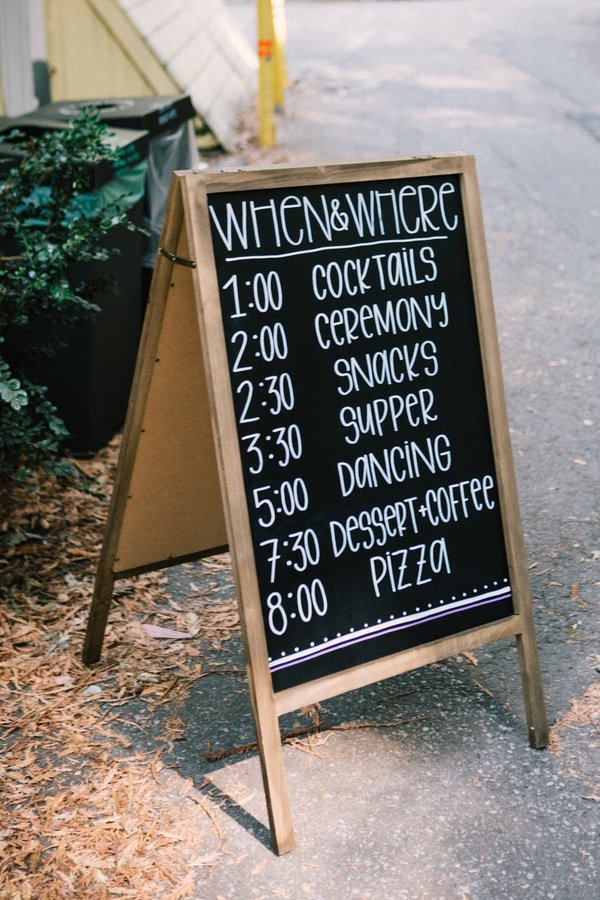 WHEN&WHERE
1:00 COCKTAILS
2:00 CEREMONY
2:30 SNACKS
3:30 SUPPER
5:00 DANCING
7:30 DESSERT+COFFEE
8:00 PIZZA